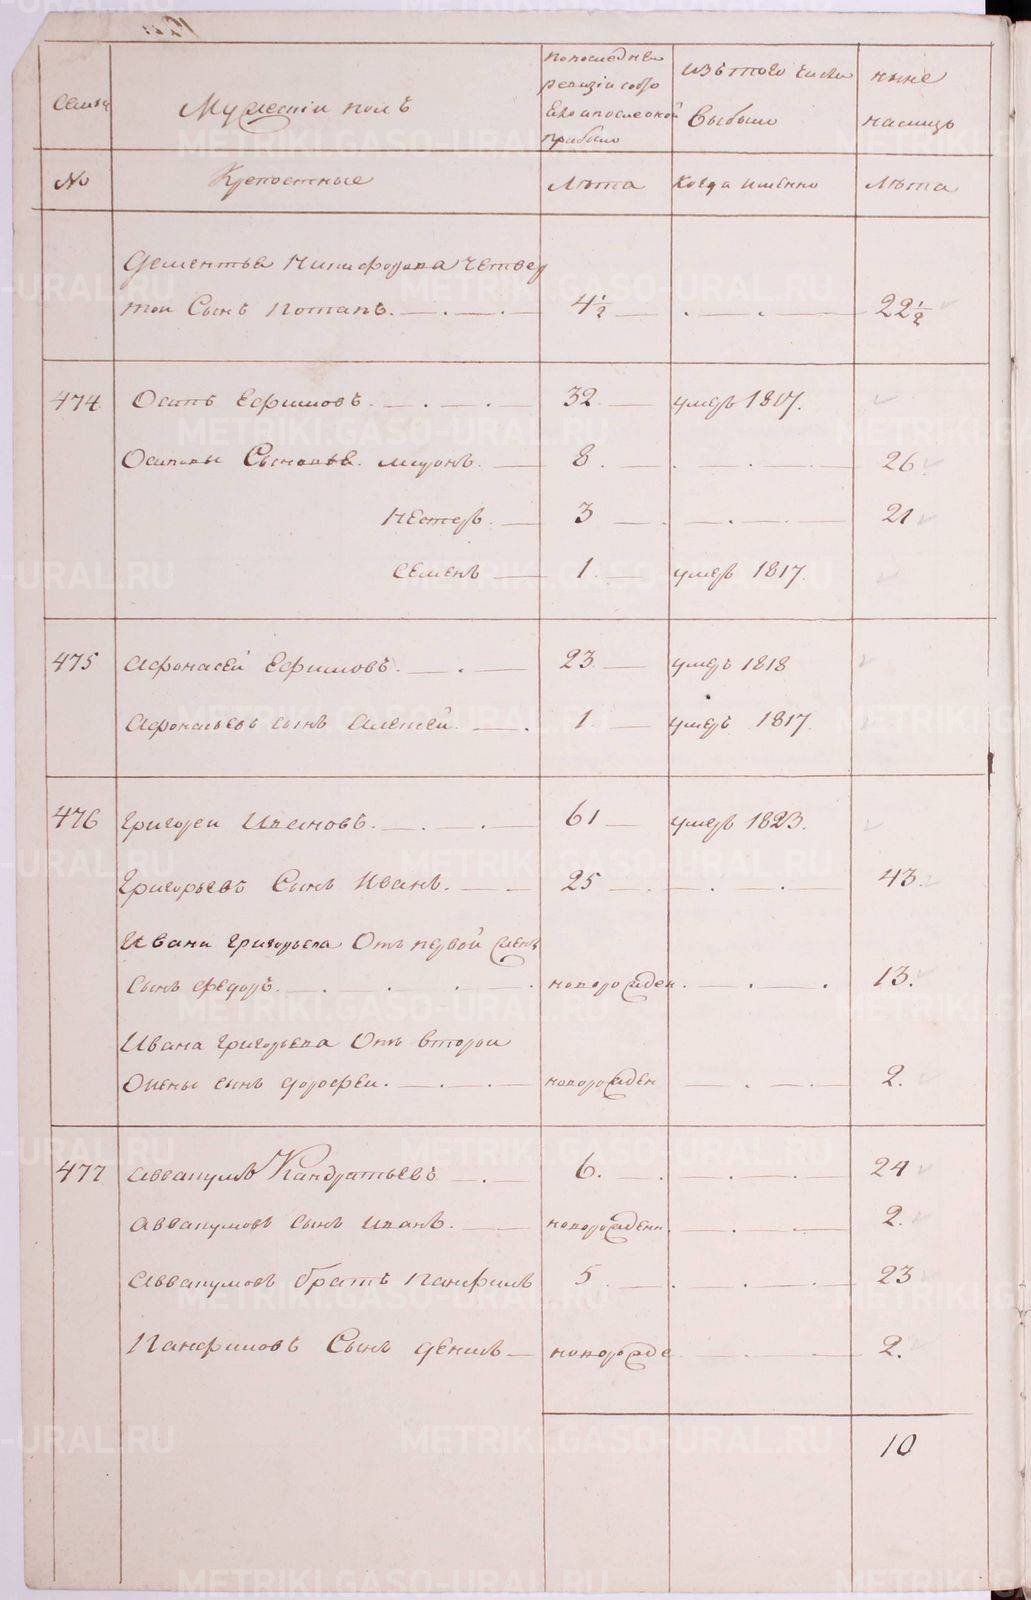 Семьи
Мужескiй полъ
по последней
ревизiи состо
яло а после оной
прибыло
изъ того числа
выбыло
ныне
на лицо
№
Крепостные
Лѣта
Когда имянно
Лѣта
Дементья Никифорова четвер
той Сынъ Потапъ. 4½ 22½
474 Осипъ Ефимовъ. 32 умеръ 1817.
Осиповы Сыновья. Миронъ. 8. 26
Нестеръ. 3 21
Семенъ 1. умеръ 1817.
475 Афонасей Ефимовъ. 23 умеръ 1818
Афонасьевъ сынъ Алексей. 1 умеръ 1817
476 Григореи Ивановъ. 61 умеръ 1823.
Григорьевъ Сынъ Иванъ. 25 43.
Ивана Григорьева Отъ первой жены
сынъ Федоръ. новорожден. 13.
Ивана Григорьева Отъ второи
Жены сынъ Дорофеи. новорожден 2.
477 Аввакумъ Кандратьевъ 6. 24
Аввакумовъ сынъ Иванъ. новорожденн. 2.
Аввакумовъ братъ Панфилъ 5 23
Панфиловъ Сынъ Денисъ новорожде 2.
10
METRIKI.GASO-URAL.RU